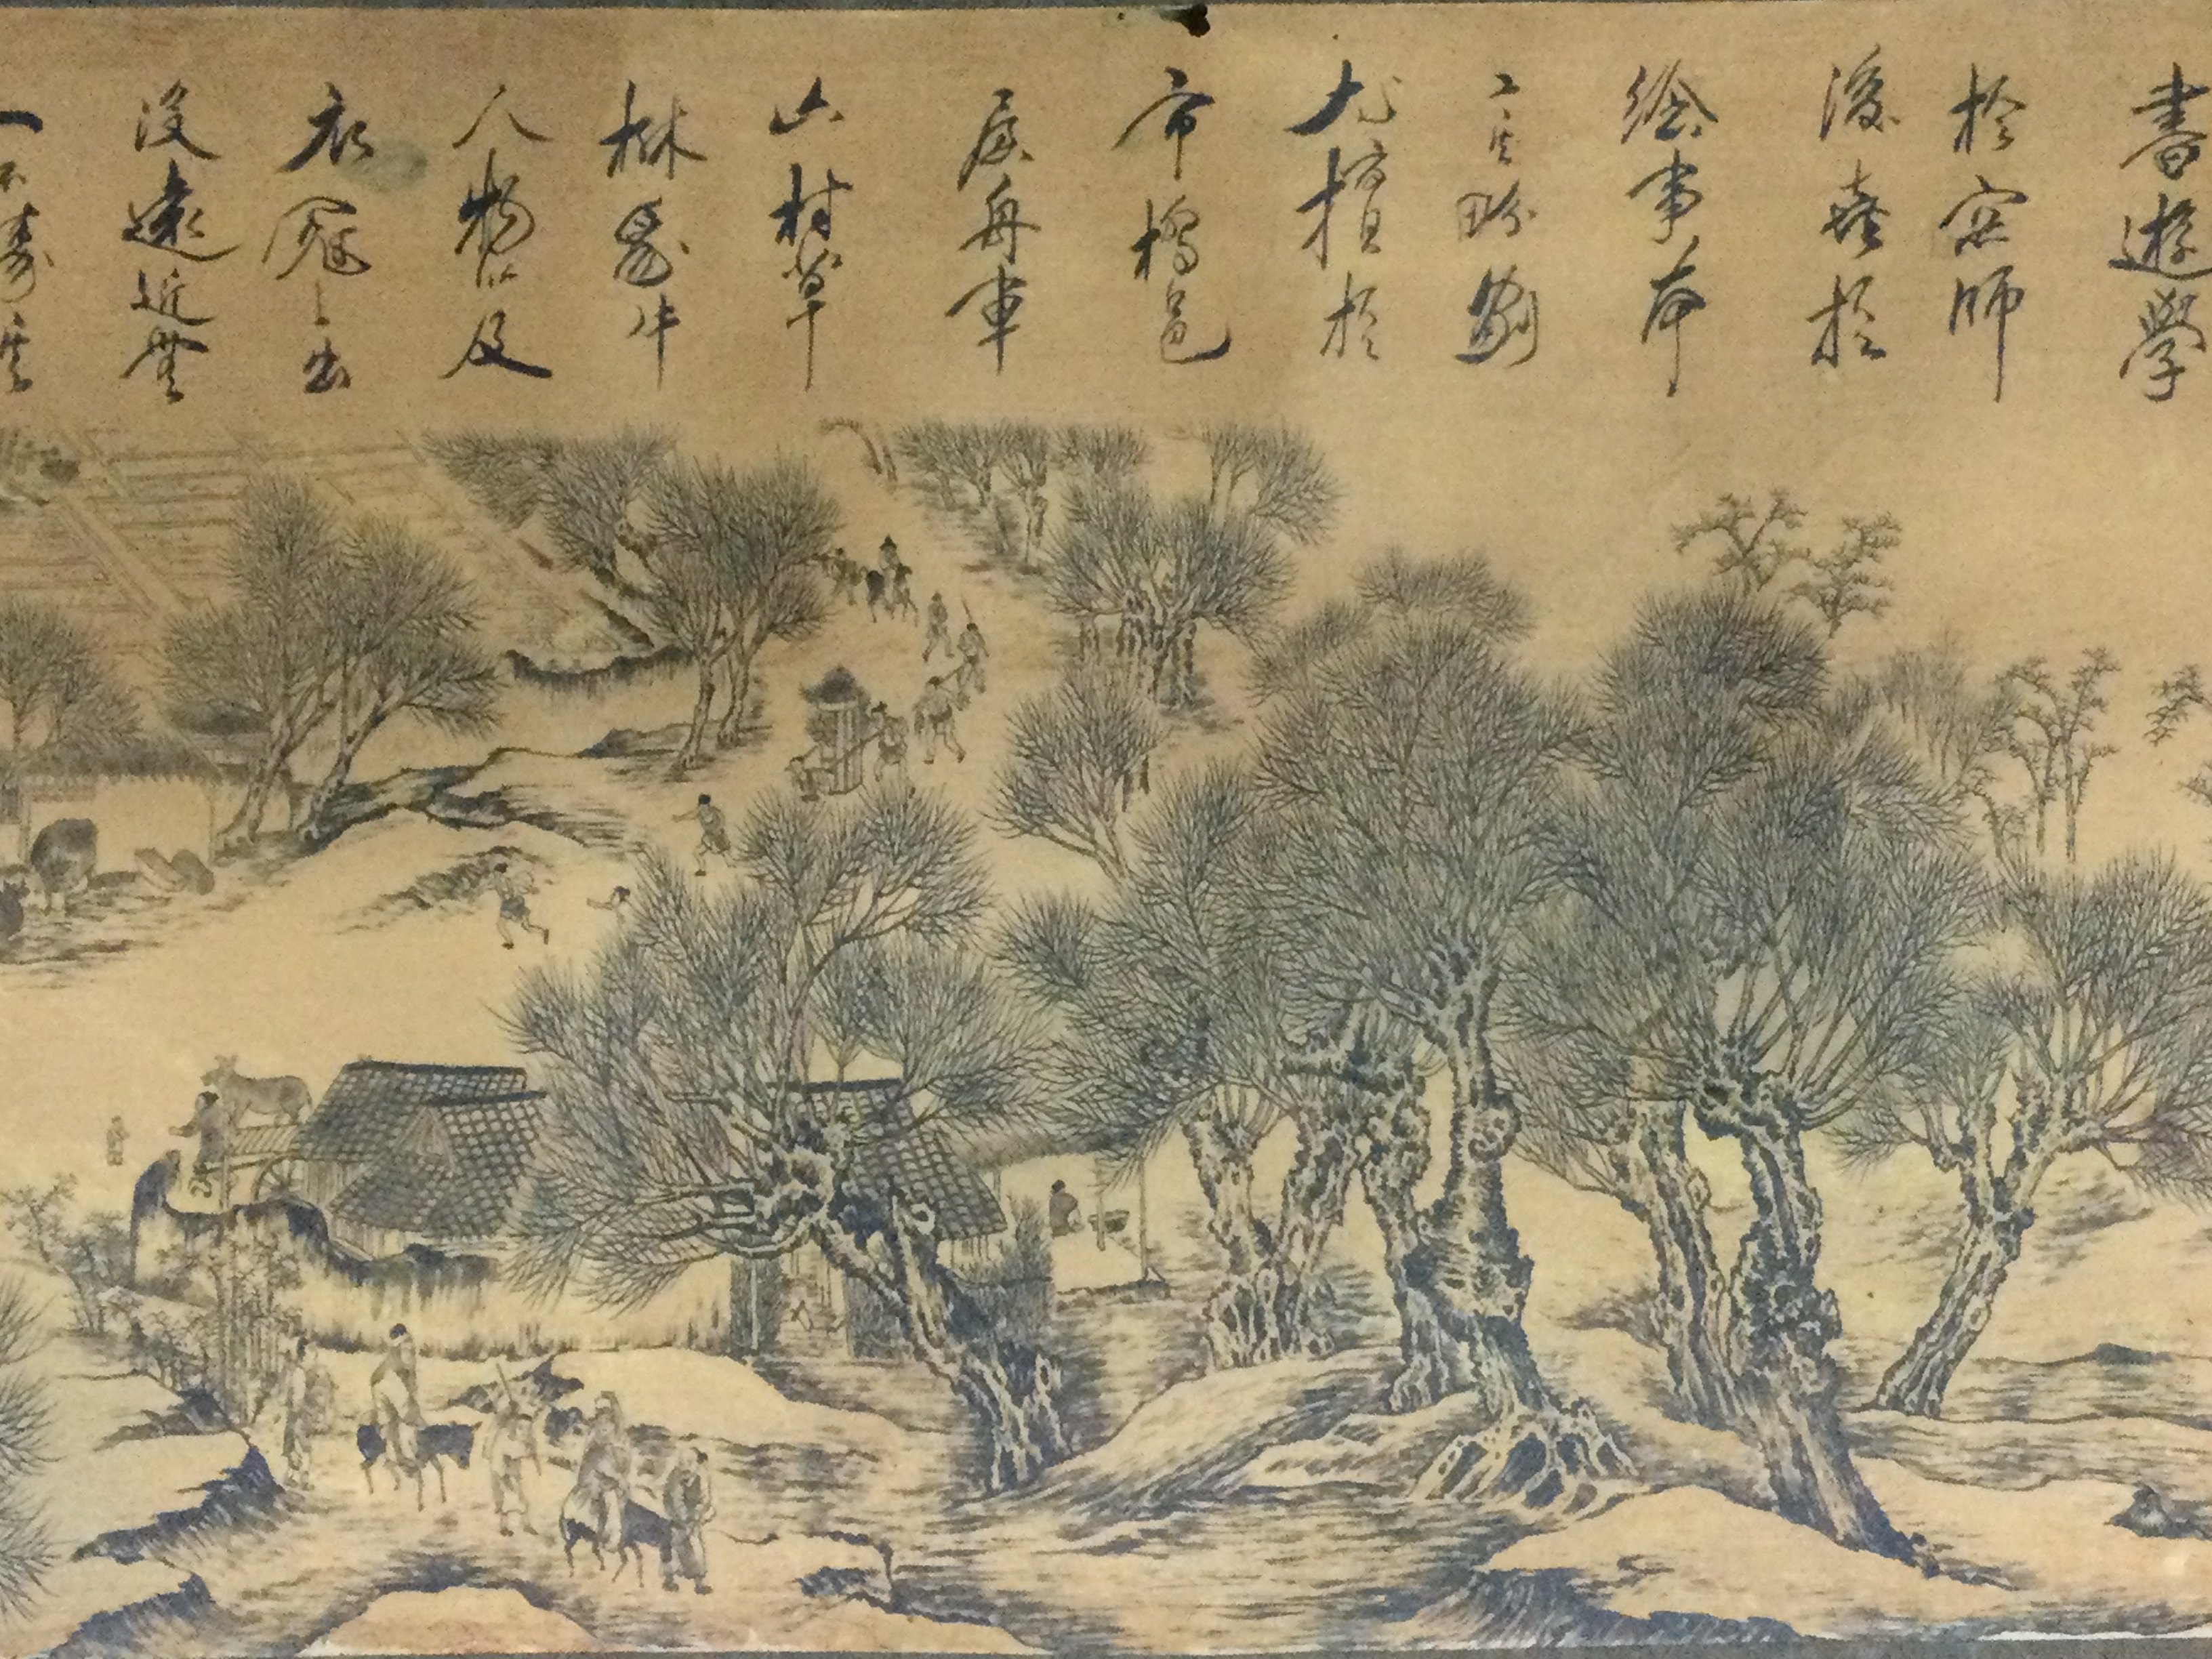 書遊學
於京師
後喜於
繪事本
工其畍劃
尤擅於
市橋邑
屋舟車
山村草
樹馬牛
人物以及
衣冠之出
沒遠近無
一不臻其